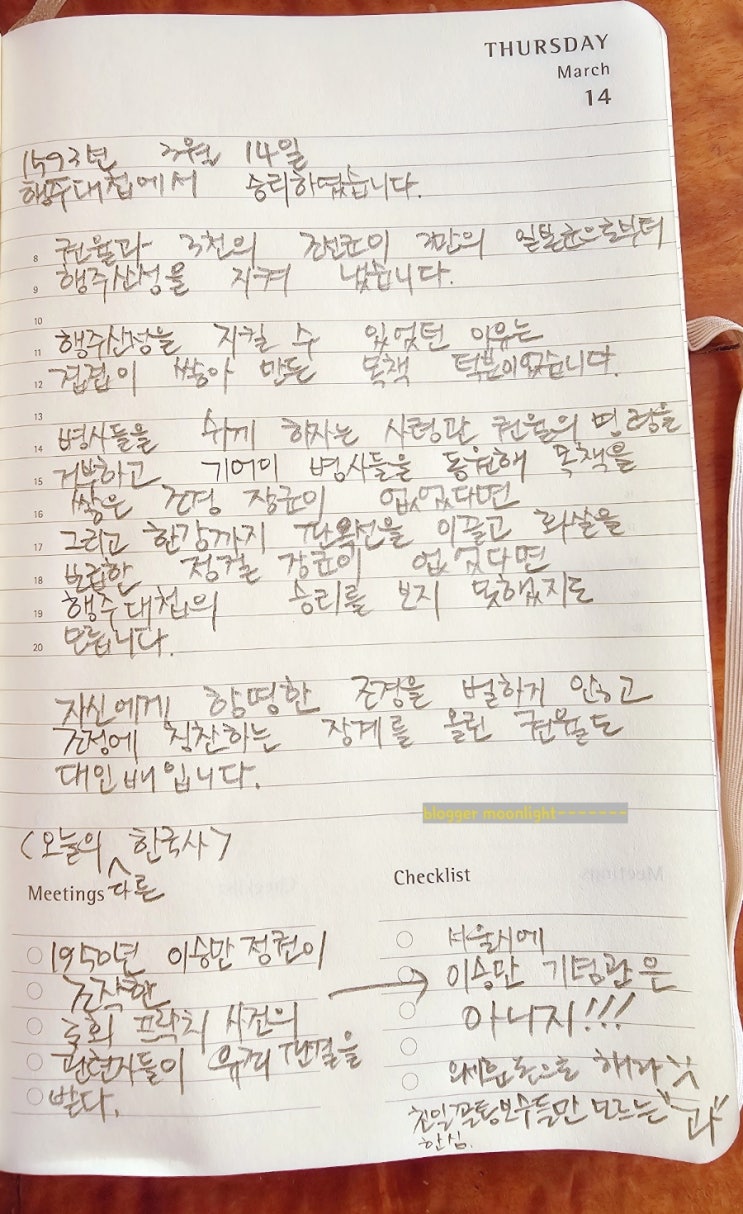 THURSDAY
March
14
1593년 3월 14일
행주대첩에서 승리하였습니다.
8 권율과 3천의 조선군이 3만의 일본군으로부터
9 행주산성을 지켜 냈습니다.
10
11 행주산성을 지킬 수 있었던 이유는
12 겹겹이 쌓아 만든 목책 덕분이었습니다.
13
14 병사들을 쉬게 하자는 사령관 권율의 명령을
15 거부하고 기어이 병사들을 동원해 목책을
16 쌓은 조경 장군이 없었다면
17 그리고 한강까지 판옥선을 이끌고 화살을
18 보급한 정걸 장군이 없었다면
19 행주대첩의 승리를 보지 못했지도
20 모릅니다.
자신에게 항명한 조경을 벌하지 않고
조정에 칭찬하는 장계를 올린 권율도
대인배입니다.
blogger moonlight-------
<오늘의 다른 한국사>
Meetings
Checklist
1950년 이승만 정권이
조작한
국회 프락치 사건의
관련자들이 유죄 판결을
받다.
서울시에
이승만 기념관은
아니지!!!
친일꼴통보수들만 모르는 "과"
한심.